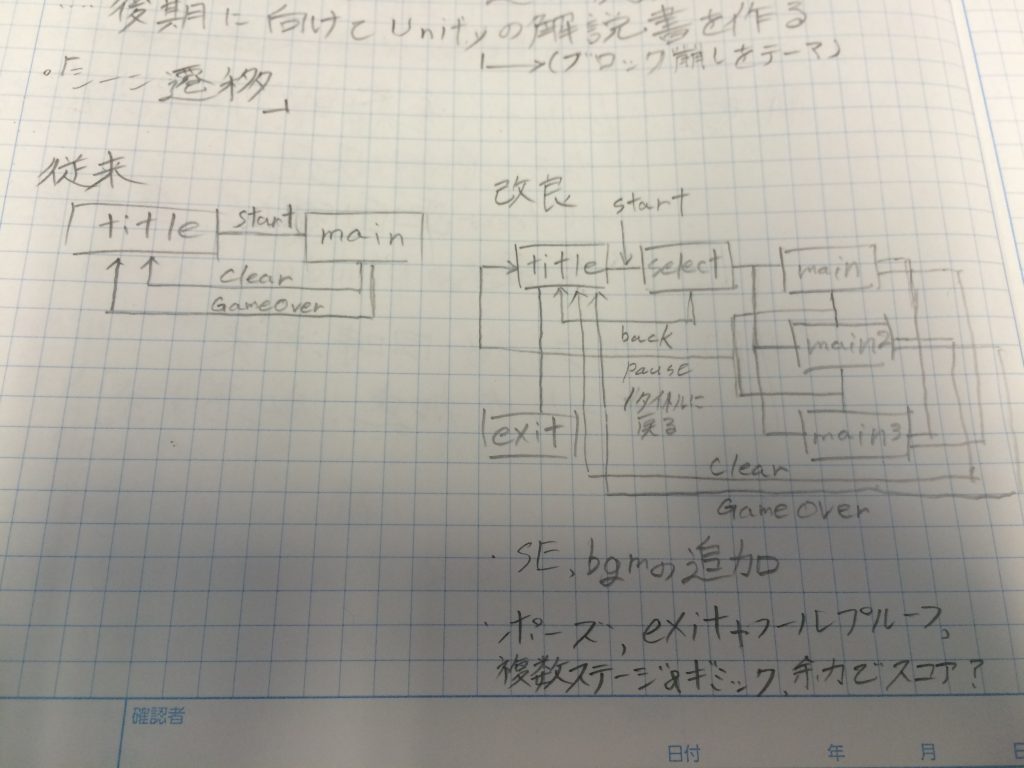 後期に向けてUnityの解説書を作る
→(ブロック崩しをテーマ)
シーン遷移
従来
title start main
clear
GameOver
改良
start
title select main
back main2
pause
タイトルに
戻る
exit main3
clear
GameOver
・SE、bgmの追加
・ポーズ、exit+フールプルーフ、
複数ステージ&ギミック、余力でスコア?
確認者
日付 年 月 日